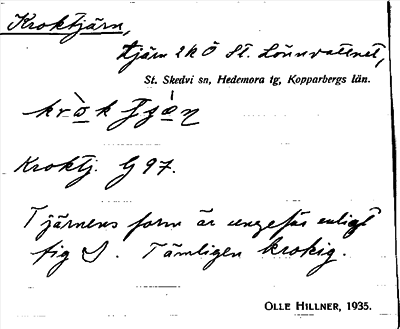 Kroktjärn,
tjärn 2 k Ö St. Lönnvattnet,
St. Skedvi sn, Hedemora tg, Kopparbergs län.
Kroktj. G 97.
Tjärnens form är ungefär enligt
fig . Tämligen krokig.
OLLE HILLNER, 1935.